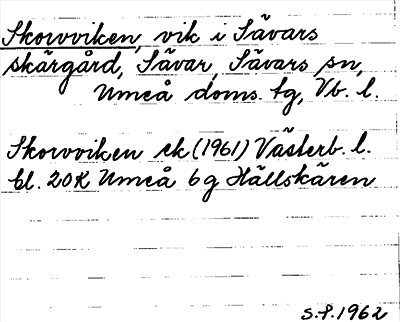 Skovviken, vik i Sävars
skärgård, Sävar, Sävars sn,
Umeå doms. tg, Vb. l.
Skovviken ek (1961) Västerb. l.
bl. 20K Umeå 6g Hällskären
S.P. 1962